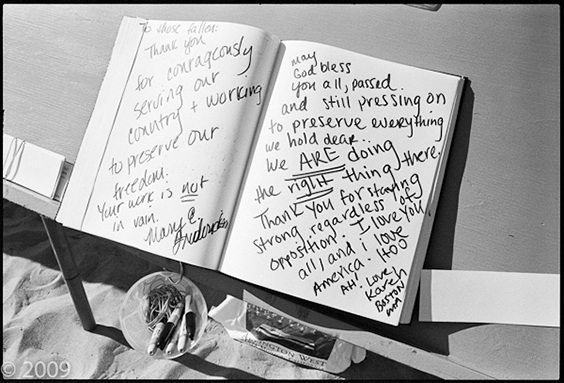 To those fallen:
Thank you
for courageously
serving our
country + working
to preserve our
freedom.
Your work is not
in vain.
Mary E
may
God bless
you all, passed.
and still pressing on
to preserve everything
we hold dear..
We ARE doing
the right thing there.
Thank you for staying
strong, regardless of
opposition. I love you
all, and i love
America!
Love,
Karen
BOSTON
MA
INGTON WEST
© 2009